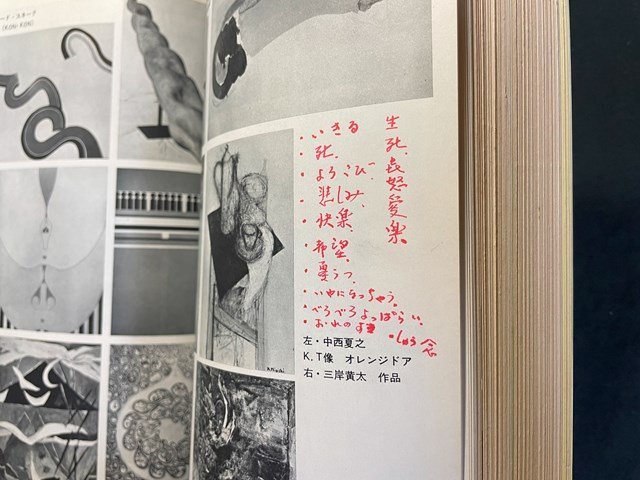 ード・スキーナ
(KON・KON)
・いきる
・死.
・よろこび
・悲しみ.
・快楽.
・希望.
・憂うつ.
・いやになっちゃう.
・べろべろよっぱらい.
・おれのす
・しゅう念
生
死.
喜
怒
愛
楽.
左・中西夏之
K.T像　オレンジドア
右・三岸黄太　作品